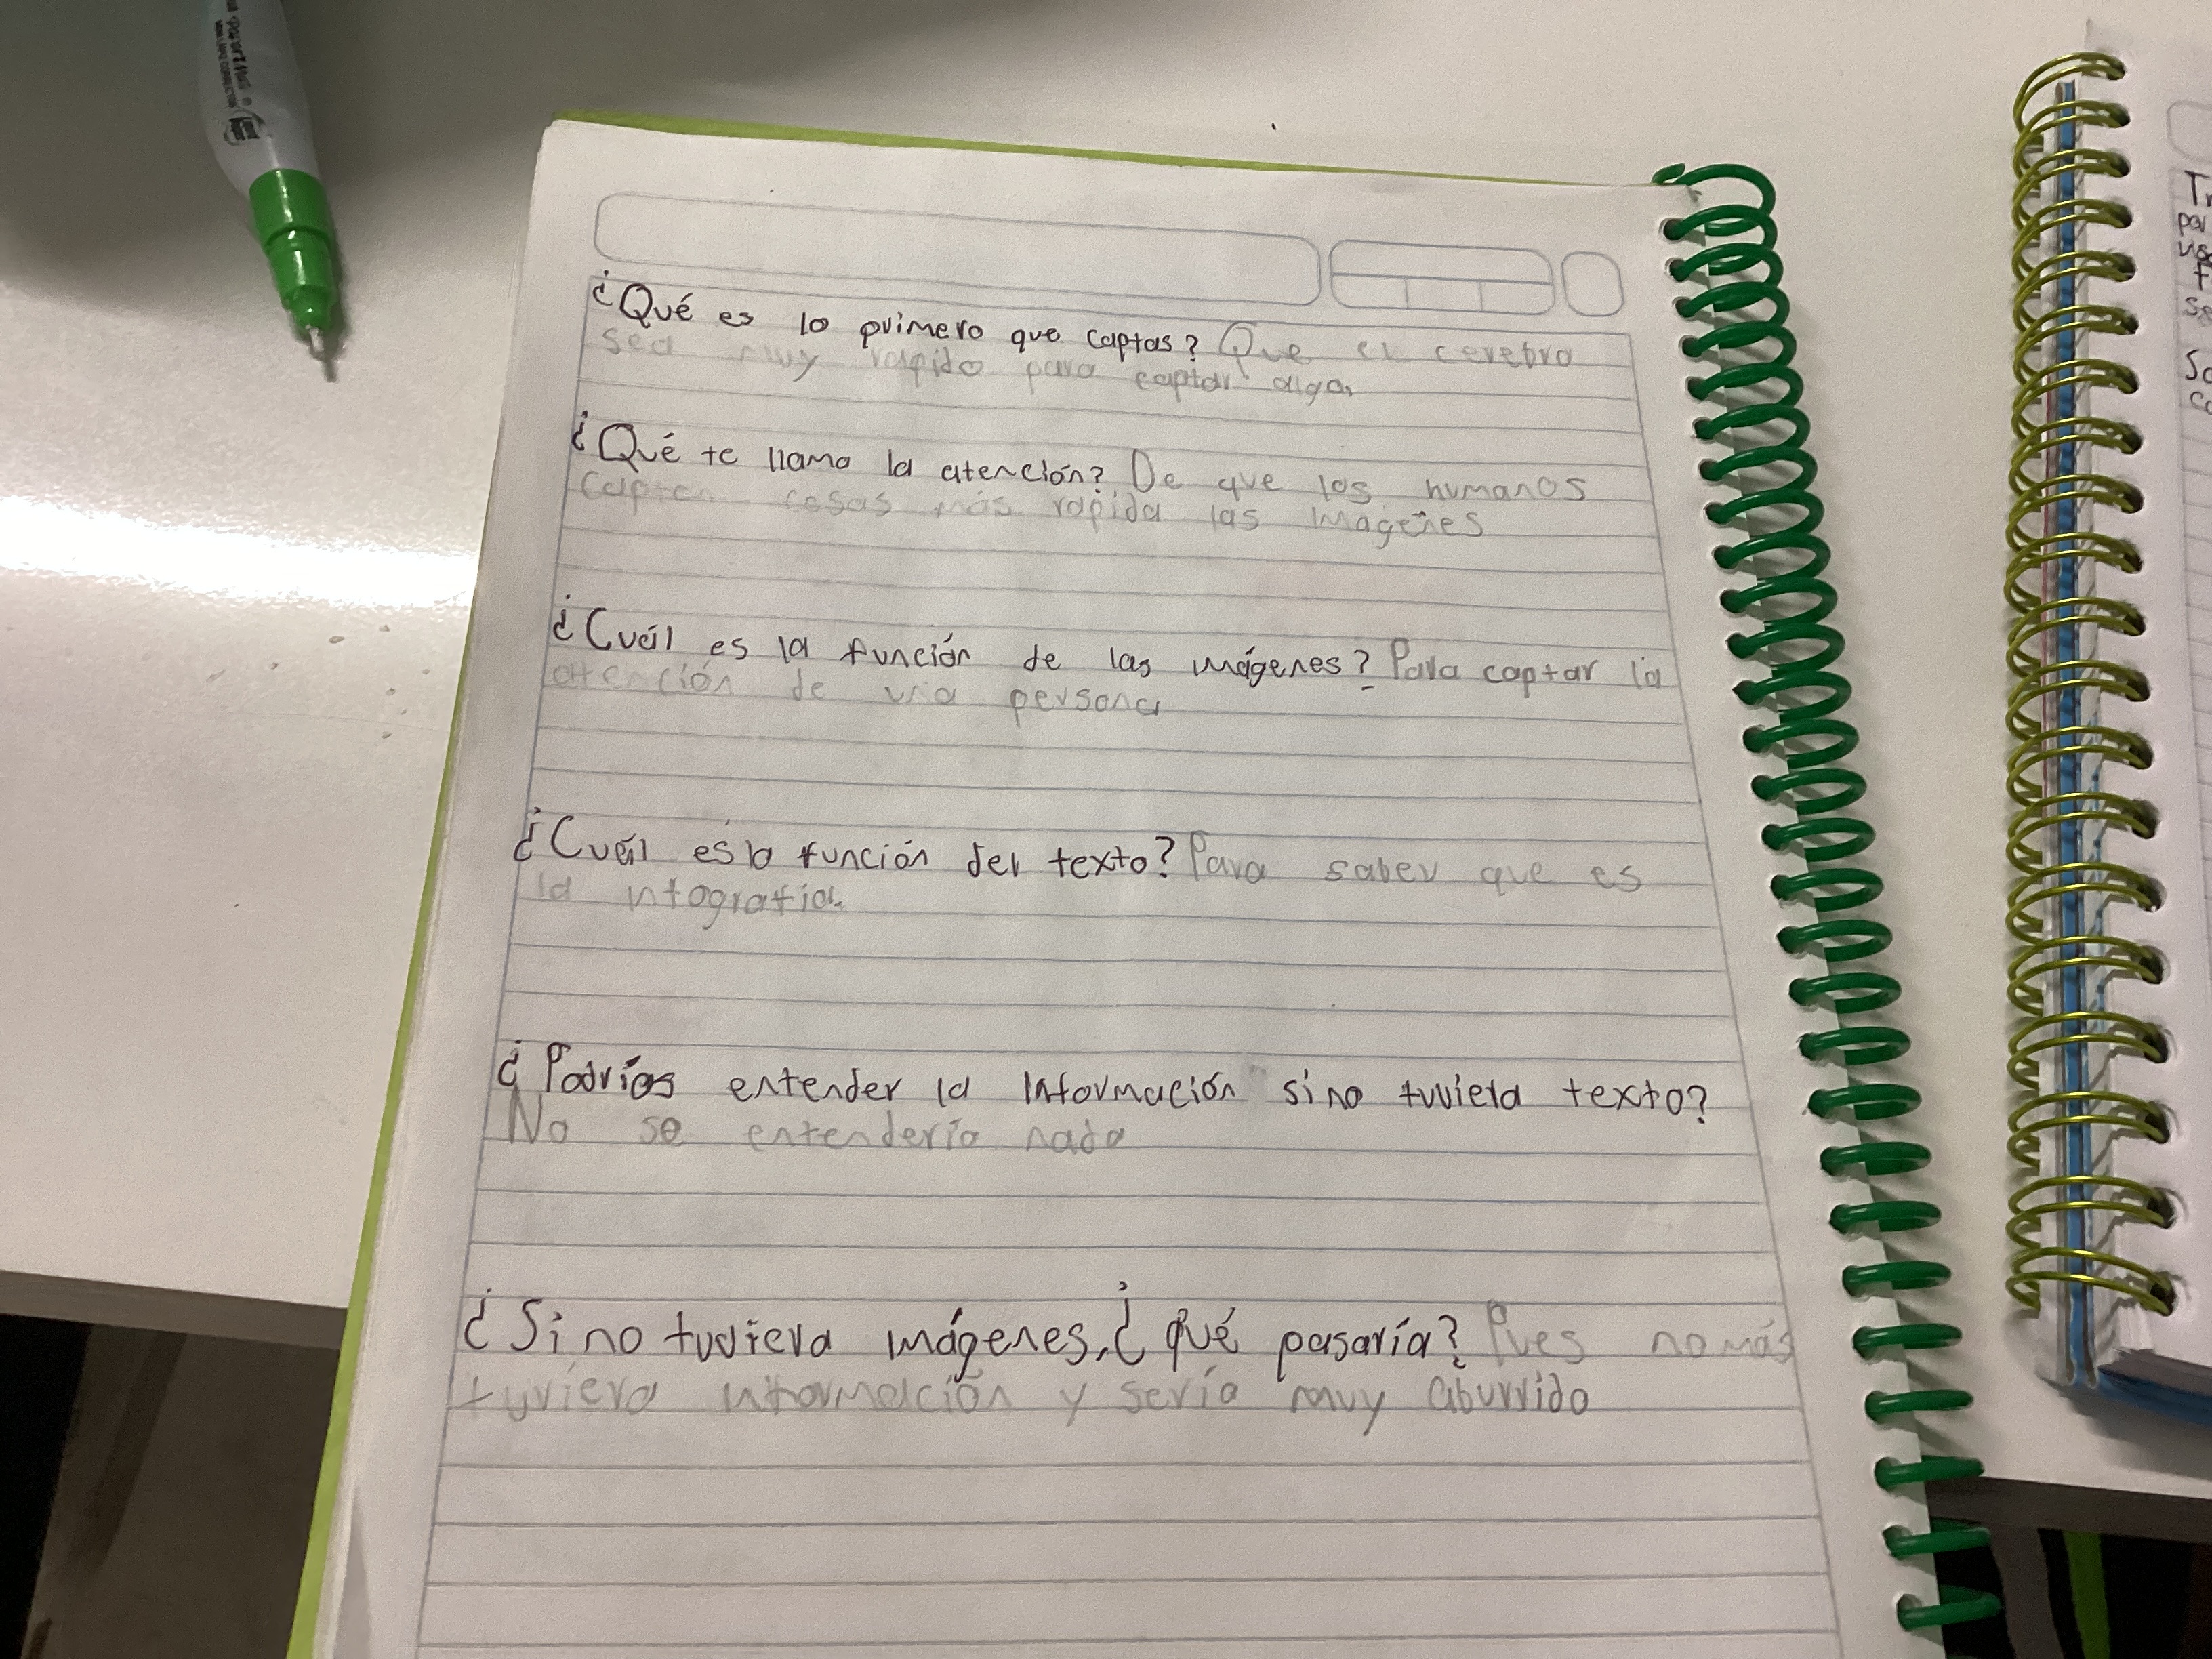 ¿Qué es lo primero que captas? Que el cerebro
sea muy rápido para captar algo.
¿Qué te llama la atención? De que los humanos
captan cosas más rápida las imagenes
¿Cuál es la función de las imágenes? Para captar la
atención de una persona
¿Cuál es la función del texto? Para saber que es
la infografia.
¿Podrías entender la Información si no tuviera texto?
No se entendería nada
¿Si no tuviera imágenes, ¿qué pasaría? Pues no más
tuviera información y sería muy aburrido
Tr
par
se
Sa
co